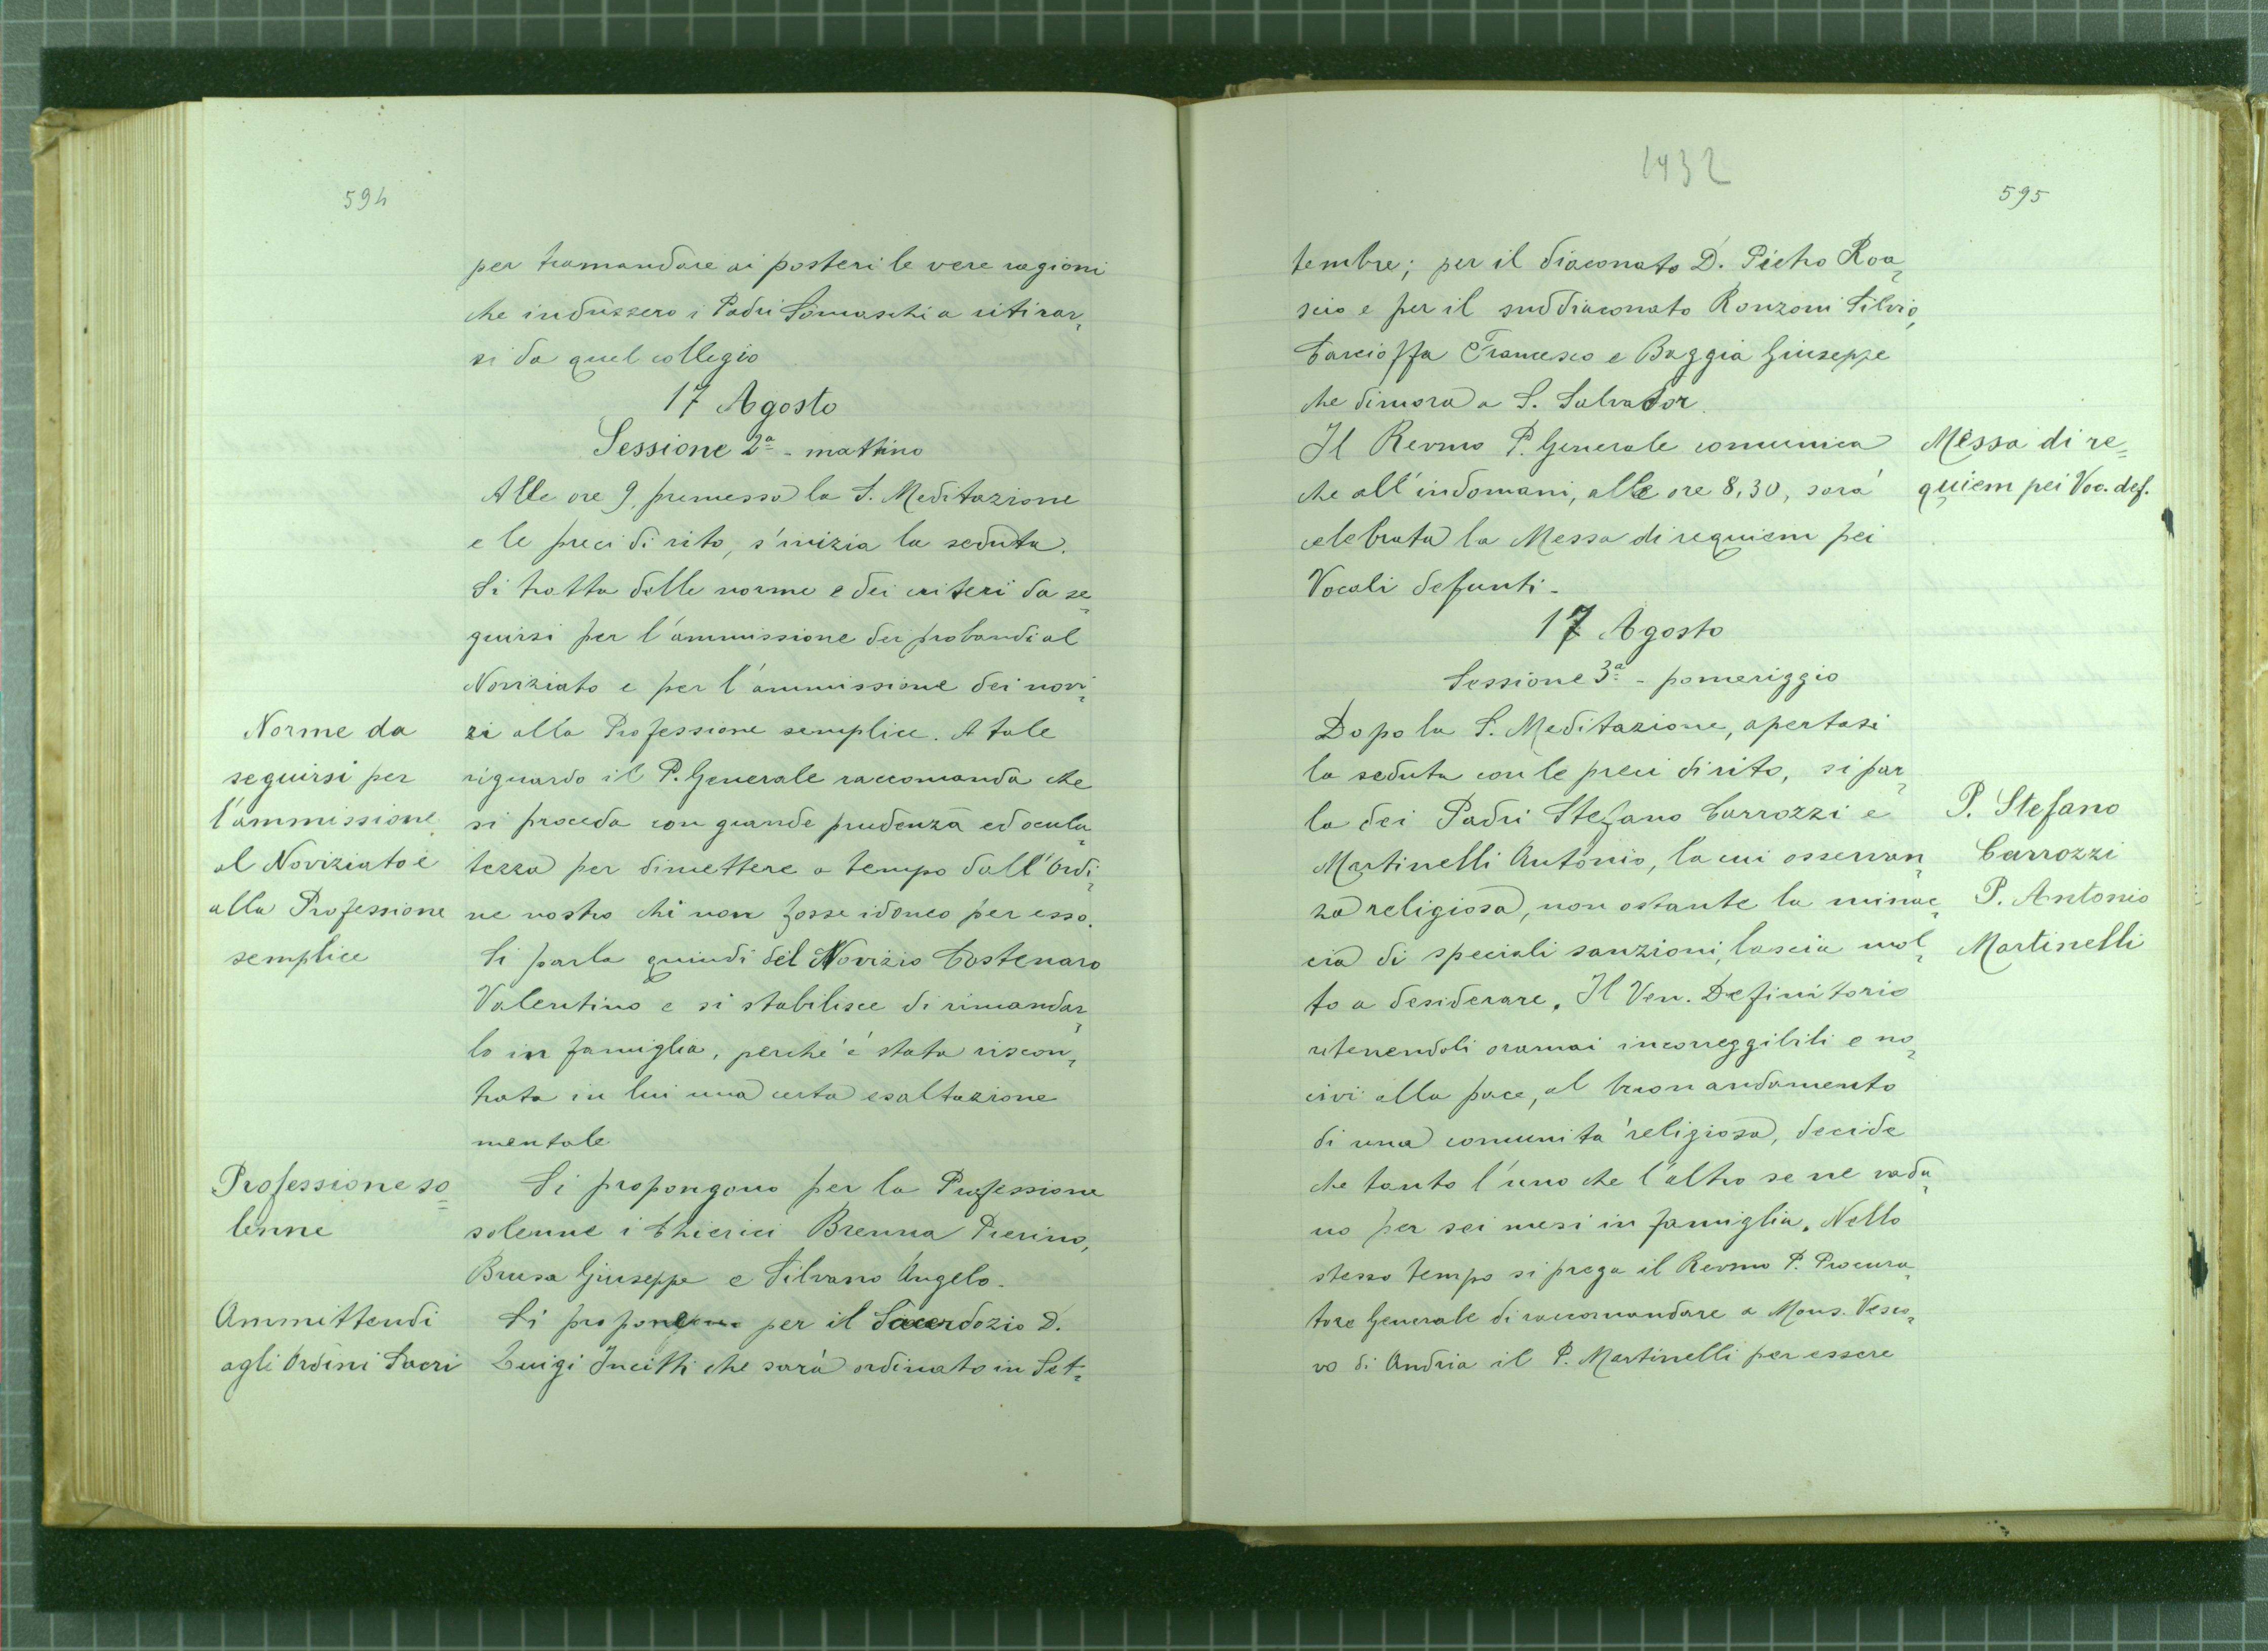 594
per tramandare ai posteri le vere ragioni
che indussero i Padri Somaschi a ritirar=
si da quel collegio
17 Agosto
Sessione 2ª - mattino
Alle ore 9, premessa la S. Meditazione
e le preci di rito, s'inizia la seduta.
Si tratta delle norme e dei criteri da se=
guirsi per l'ammissione dei probandi al
Noviziato e per l'ammissione dei novi=
Norme da
seguirsi per
l'ammissione
al Noviziato e
alla Professione
semplice
zi alla Professione semplice. A tale
riguardo il P. Generale raccomanda che
si proceda con grande prudenza ed ocula=
tezza per dimettere a tempo dall'Ordi=
ne nostro chi non fosse idoneo per esso.
Si parla quindi del Novizio Costenaro
Valentino e si stabilisce di rimandar=
lo in famiglia, perchè è stata riscon=
trata in lui una certa esaltazione
mentale
Professione so=
lenne
Si propongono per la Professione
solenne i Chierici Brenna Pierino,
Brusa Giuseppe e Silvano Angelo.
Ammittendi
agli Ordini Sacri
Si propone per il Sacerdozio D.
Luigi Incitti che sarà ordinato in Set=
1432
595
tembre; per il diaconato D. Pietro Roa=
scio e per il suddiaconato Ronzoni Silvio,
Carcioffa Francesco e Boggia Giuseppe
che dimora a S. Salvador.
Il Revmo P. Generale comunica
che all'indomani, alle ore 8,30, sarà
celebrata la Messa di requiem pei
Vocali defunti -
Messa di re=
quiem pei Voc. def.
17 Agosto
Sessione 3ª - pomeriggio
Dopo la S. Meditazione, apertasi
la seduta con le preci di rito, si par=
la dei Padri Stefano Carrozzi e
Martinelli Antonio, la cui osservan=
za religiosa, non ostante la minac=
cia di speciali sanzioni, lascia mol=
to a desiderare. Il Ven. Definitorio
ritenendoli oramai incorreggibili e no=
civi alla pace, al buon andamento
di una comunità religiosa, decide
che tanto l'uno che l'altro se ne vada=
no per sei mesi in famiglia. Nello
stesso tempo si prega il Revmo P. Procura=
tore Generale di raccomandare a Mons. Vesco=
vo di Andria il P. Martinelli per essere
P. Stefano
Carrozzi
P. Antonio
Martinelli